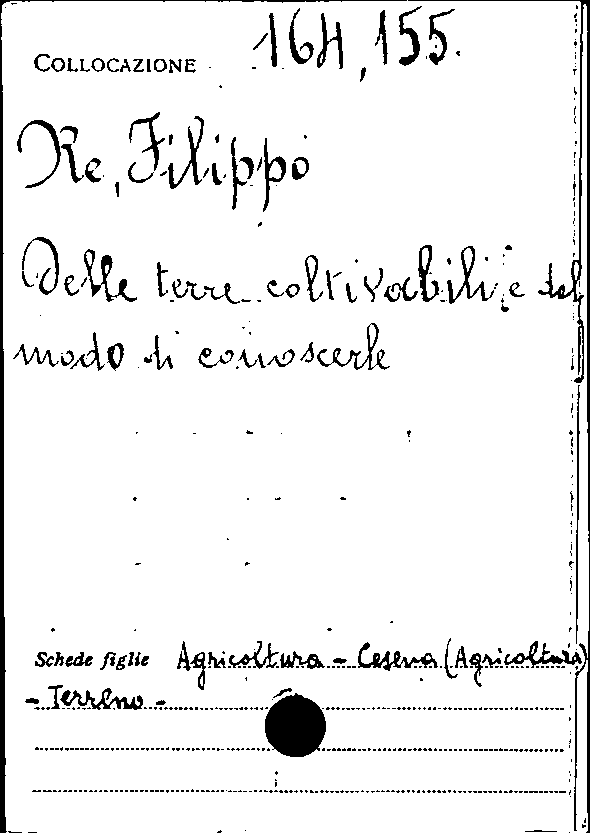 COLLOCAZIONE 164,155.
Re, Filippo
Delle terre coltivabili, e del
modo di conoscerle
Schede figlie Agricoltura - Cesena (Agricoltura)
- Terreno -